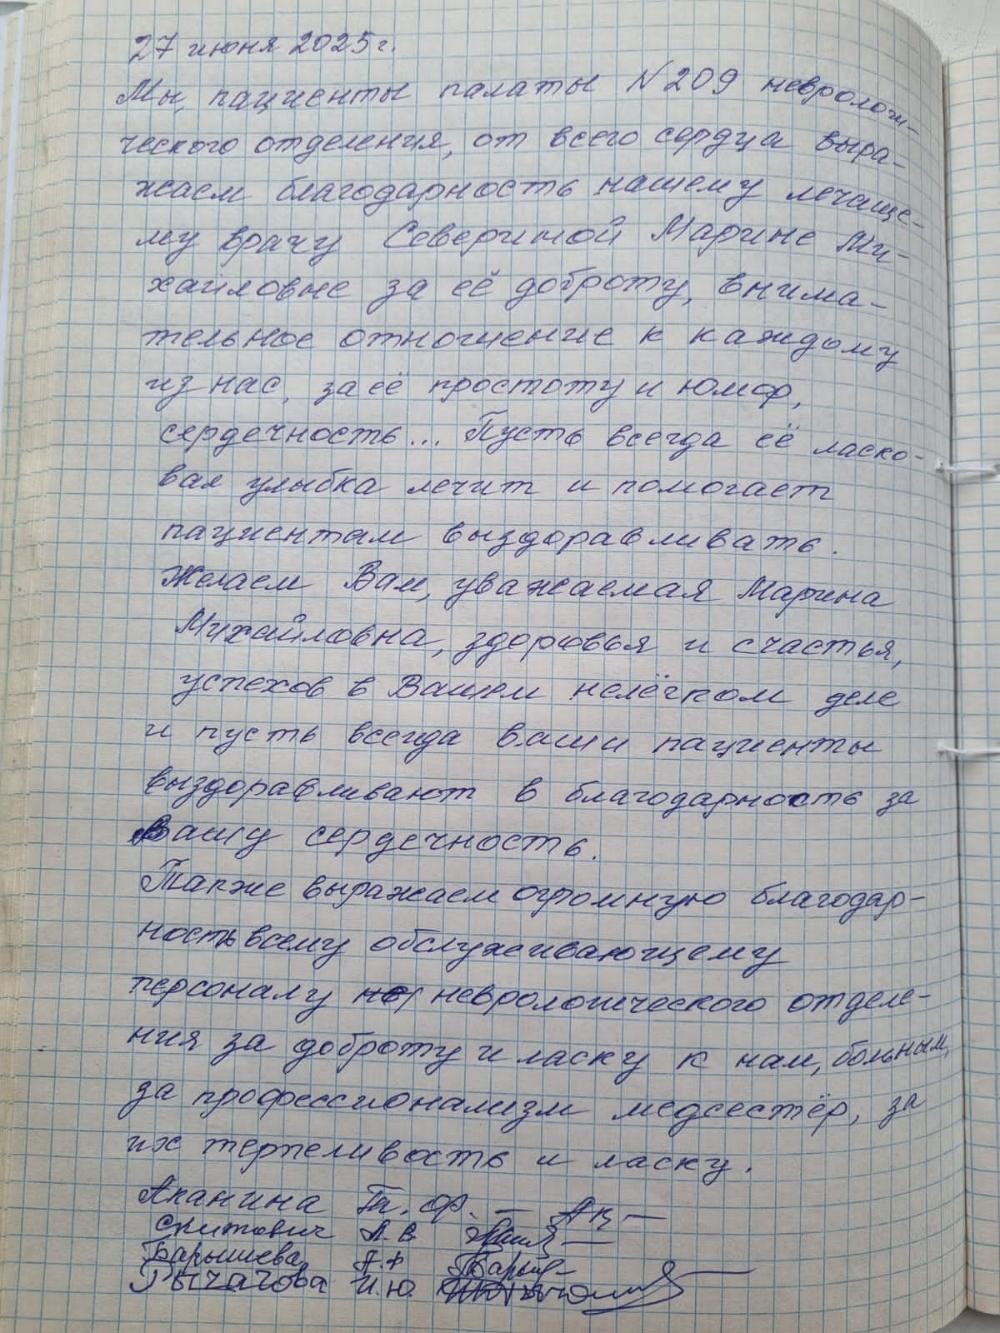 27 июня 2025г.
Мы, пациенты палаты №209 неврологи-
ческого отделения, от всего сердца выра-
жаем благодарность нашему лечаще-
му врачу Севериной Марине Ми-
хайловне за её доброту, внима-
тельное отношение к каждому
из нас, за её простоту и юмор,
сердечность... Пусть всегда её ласко-
вая улыбка лечит и помогает
пациентам выздоравливать.
Желаем Вам, уважаемая Марина
Михайловна, здоровья и счастья,
успехов в Вашем нелёгком деле
и пусть всегда ваши пациенты
выздоравливают в благодарность за
Вашу сердечность.
Также выражаем огромную благодар-
ность всему обслуживающему
персоналу неврологического отделе-
ния за доброту и ласку к нам, больным,
за профессионализм медсестёр, за
их терпеливость и ласку.
Аканина Гл. Ф.
Скитович А.В.
Барышева
Рычагова И.Ю.